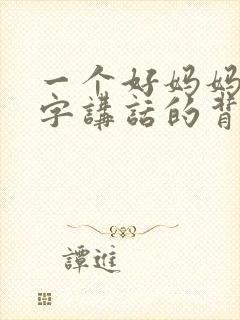 一个好妈妈
字講話的背
譚進